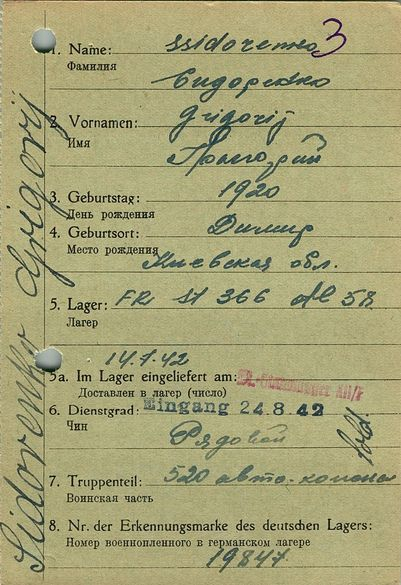 3
1. Name: Ssidorenko
Фамилия
Сидоренко
2. Vornamen: Grigorij
Имя
Григорий
3. Geburtstag: 1920
День рождения
4. Geburtsort: Димир
Место рождения
Киевская обл.
5. Lager: FR St 366
Лагерь
14.7.42
5a. Im Lager eingeliefert am:
Доставлен в лагер (число)
6. Dienstgrad: Eingang 24.8.42
Чин
Рядовой
7. Truppenteil: 520 авто-колона
Воинская часть
8. Nr. der Erkennungsmarke des deutschen Lagers:
Номер военнопленного в германском лагере
19847
Sidorenko Grigorij